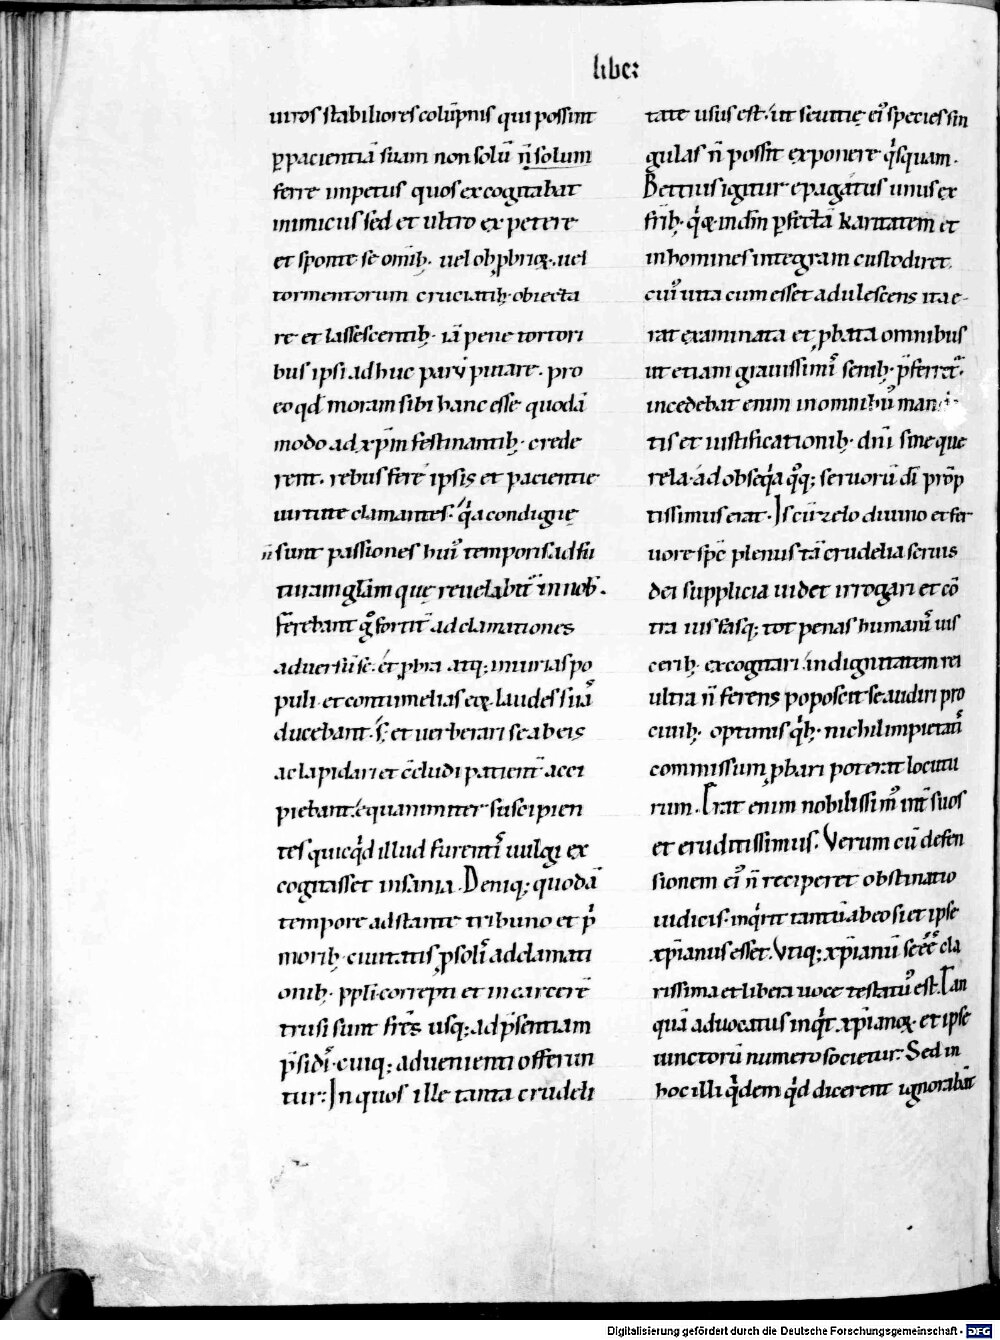 liber
uiros stabiliores colūpnis qui possint
ꝑ pacientiā suam non solū n̄ solum
ferre impetus quos excogitabat
inimicus sed et ultro expetere
et sponte se omīb; uel obꝓbrioꝝ. uel
tormentorum cruciatib; obiecta
re et lassescentib; iā pene tortori
bus ipsi adhuc parū putare. pro
eo qd̄ moram sibi hanc esse quodā
modo ad xp̄m festinantib; crede
rent. rebus fere ipsis et pacientie
uirtute clamantes. q̇a condignę
n̄ sunt passiones hui᾽ temporis. ad fu
turam gl̄am quę reuelabit᷑ in nob̄.
Ferebant g̊ fortit᷑ adclamationes
aduersū se. et ꝓbra atq; iniurias po
puli et contumelias eoꝝ. laudes suā
ducebant. s; et uerberari se ab eis
ac lapidari et c̄cludi patient᷑ acci
piebant. equanimiter suscipien
tes quicq̇d illud furentis uulgi ex
cogitasset insania. Deniq; quodā
tempore adstante tribuno et ṗ
morib; ciuitatis ꝓ solitis adclamati
onib; pp̄li correpti et in carcerē
trusi sunt fr̄es usq; ad p̄sentiam
p̄sidis. cuiq; aduenienti offerun
tur. In quos ille tanta crudeli
tate usus est. ut seuitię ei᾽ species sin
gulas n̄ possit exponere q̇squam.
Bettius igitur epagatus unus ex
fr̄ib; q̇ ꝙ in dm̄ ꝑfectā karitatem et
in homines integram custodiret.
cui᾽ uita cum esset adulescens ita e
rat examinata et ꝓbata omnibus
ut etiam grauissimis senib; p̄ferret᷑.
incedebat enim in omnibus manda
tis et iustificationib; dn̄i sine que
rela. ad obseq̇a q̊q; seruorū dī prōp
tissimus erat. Is cū zelo diuino et fer
uore sp̄c plenus tā crudelia seruis
dei supplicia uidet irrogari et cō
tra ius fasq; tot penas humanis uis
cerib; excogitari. indignitatem rei
ultra n̄ ferens poposcit se audiri pro
ciuib; optimis q̇b; nichil impietatis
commissum ꝓbari poterat locutu
rum. Erat enim nobilissim᾽ int̄ suos
et eruditissimus. Verum cū defen
sionem ei᾽ n̄ reciperet obstinatio
iudicis. inq̇rit tantū ab eo si et ipse
xp̄ianus esset. Vtiq; xp̄ianū se eē cla
rissima et libera uoce testatus est. Tan
quā aduocatus inq̇t xp̄ianoꝝ. et ipse
iunctorū numero societur. Sed in
hoc illi q̇dem q̇d dicerent ignorabāt
Digitalisierung gefördert durch die Deutsche Forschungsgemeinschaft - DFG